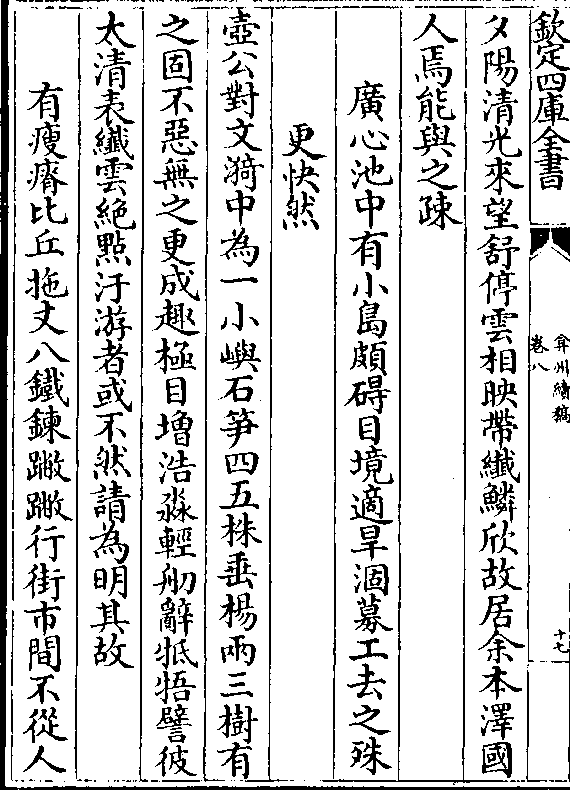 欽定四庫全書
弇州續稿
卷八
十七
夕陽清光來望舒停雲相映帶纖鱗欣故居余本澤國
人焉能與之疎
廣心池中有小島頗碍目境適旱涸募工去之殊
更快然
壺公對文漪中為一小嶼石笋四五株垂楊兩三樹有
之固不惡無之更成趣極目增浩淼輕舠辭牴牾譬彼
太清表纖雲絕點汙游者或不然請為明其故
有瘦瘠比丘拖丈八鐵鍊蹩蹩行街市間不從人